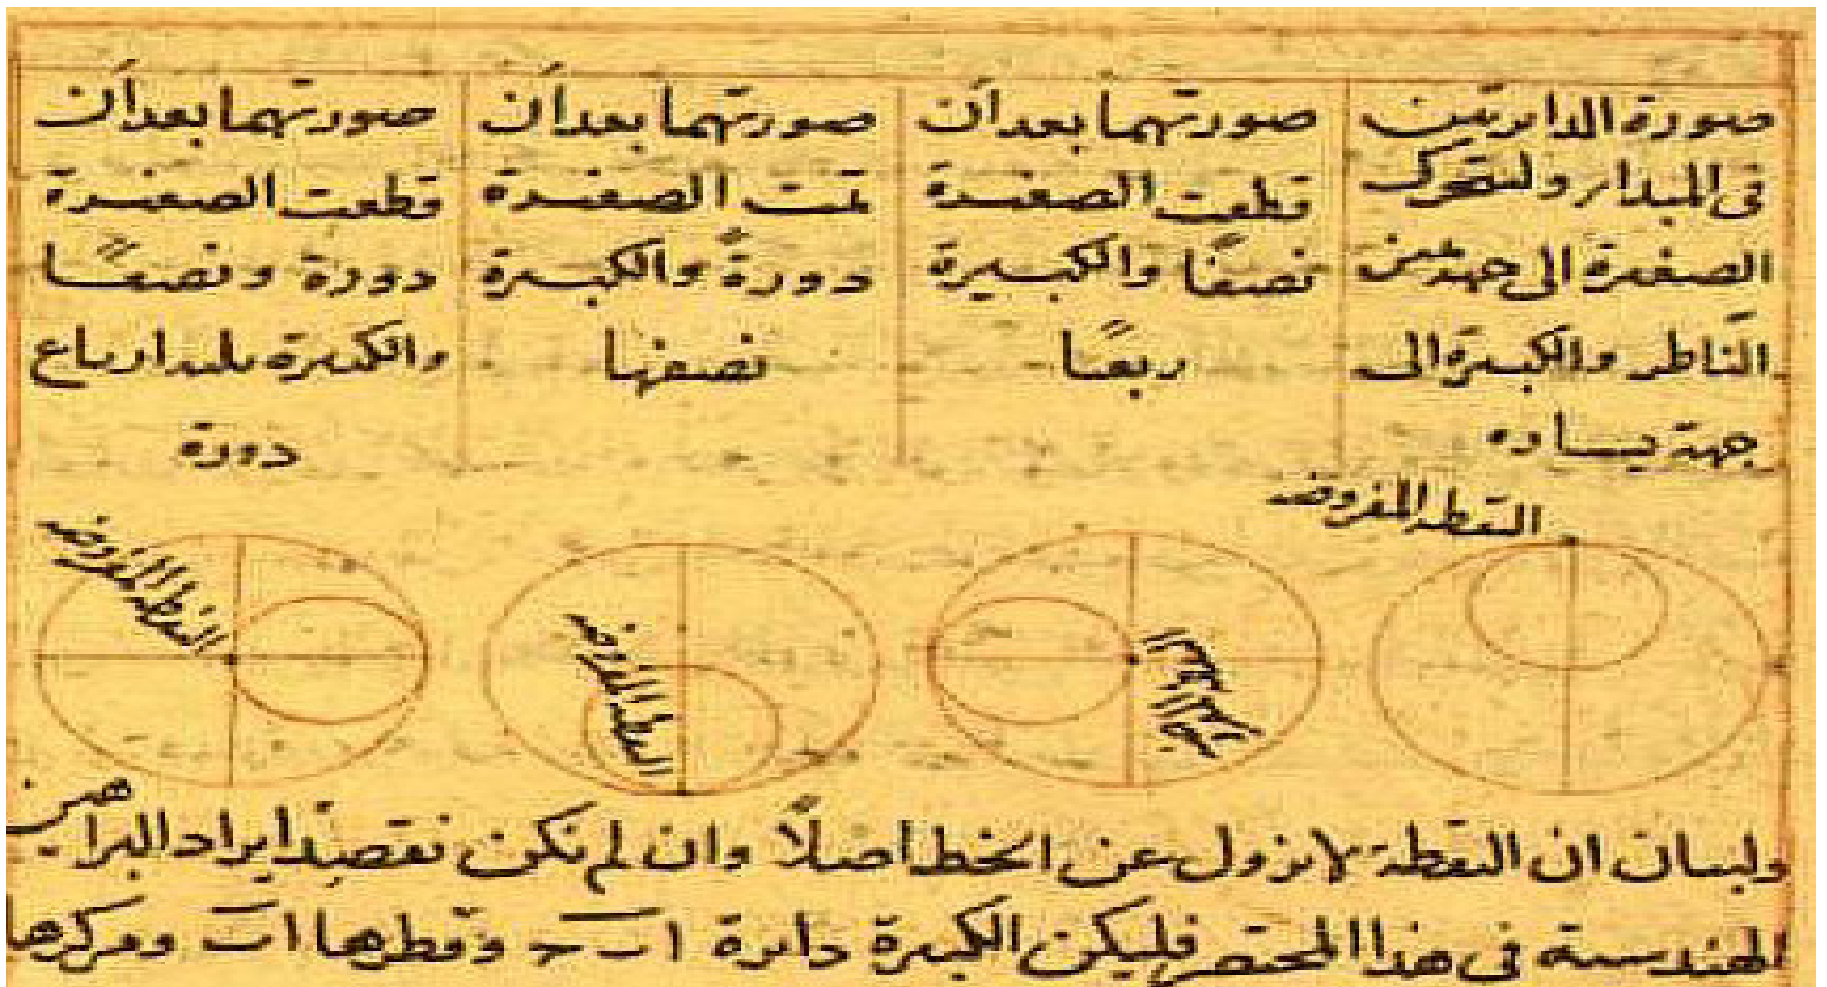 صورة الدايرتين
فى المبدا ولتتحرك
الصغيرة الى جهة يمين
الناظر والكبيرة الى
جهة يساره
صورتهما بعد أن
قطعت الصغيرة
نصفًا والكبيرة
ربعًا
صورتهما بعد أن
تمت الصغيرة
دورةً والكبيرة
نصفها
صورتهما بعد أن
قطعت الصغيرة
دورة ونصفًا
والكبيرة ثلثة ارباع
دورة
النقطة المفروضة
النقطة المفروضة
النقطة المفروضة
النقطة المفروضة
ولبيان ان النقطة لا يزول عن الخط اصلًا وان لم نكن نقصد ايراد البراهين
الهندسية فى هذا المختصر فليكن الكبيرة دايرة ا ب ج وقطرها ا ب ومركزها